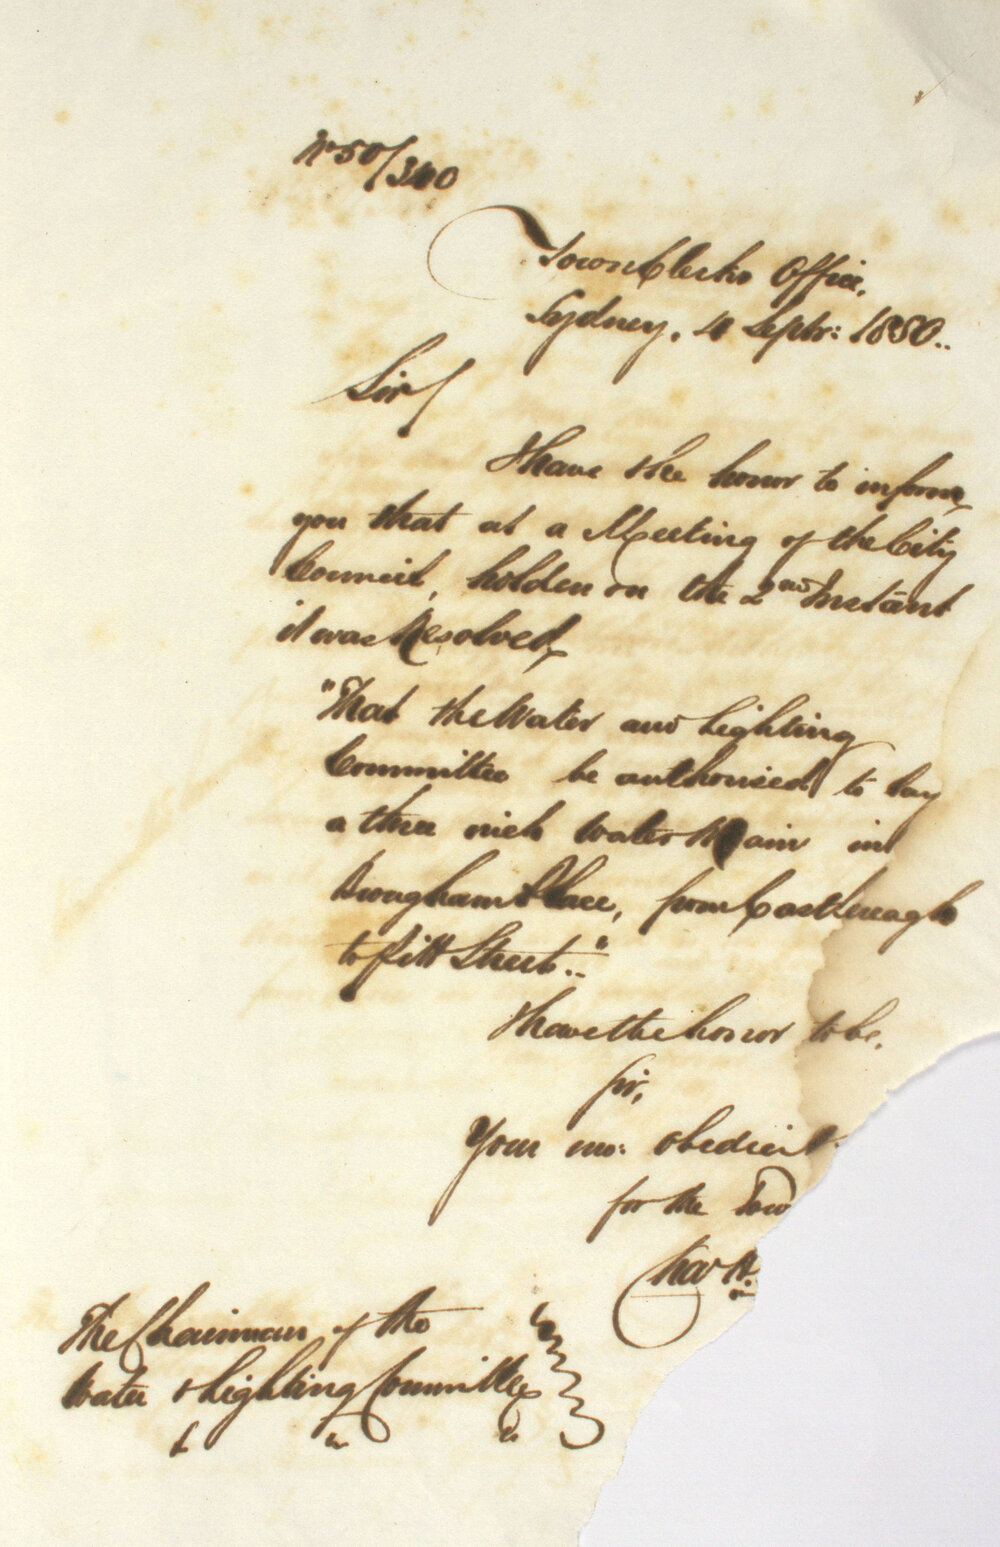 No 50/340
Town Clerks Office,
Sydney, 4 Septr: 1850..
Sir/
I have the honor to inform
you that at a Meeting of the City
Council, holden on the 2nd Instant
it was Resolved,
"That the Water and Lighting
Committee be authorised to lay
a three inch Water Main in
Brougham Place, from Castlereagh
to Pitt Street.."
I have the honor to be,
Sir,
Your mo: obedient
for the Tow
Chas H.
The Chairman of the
Water & Lighting Committee